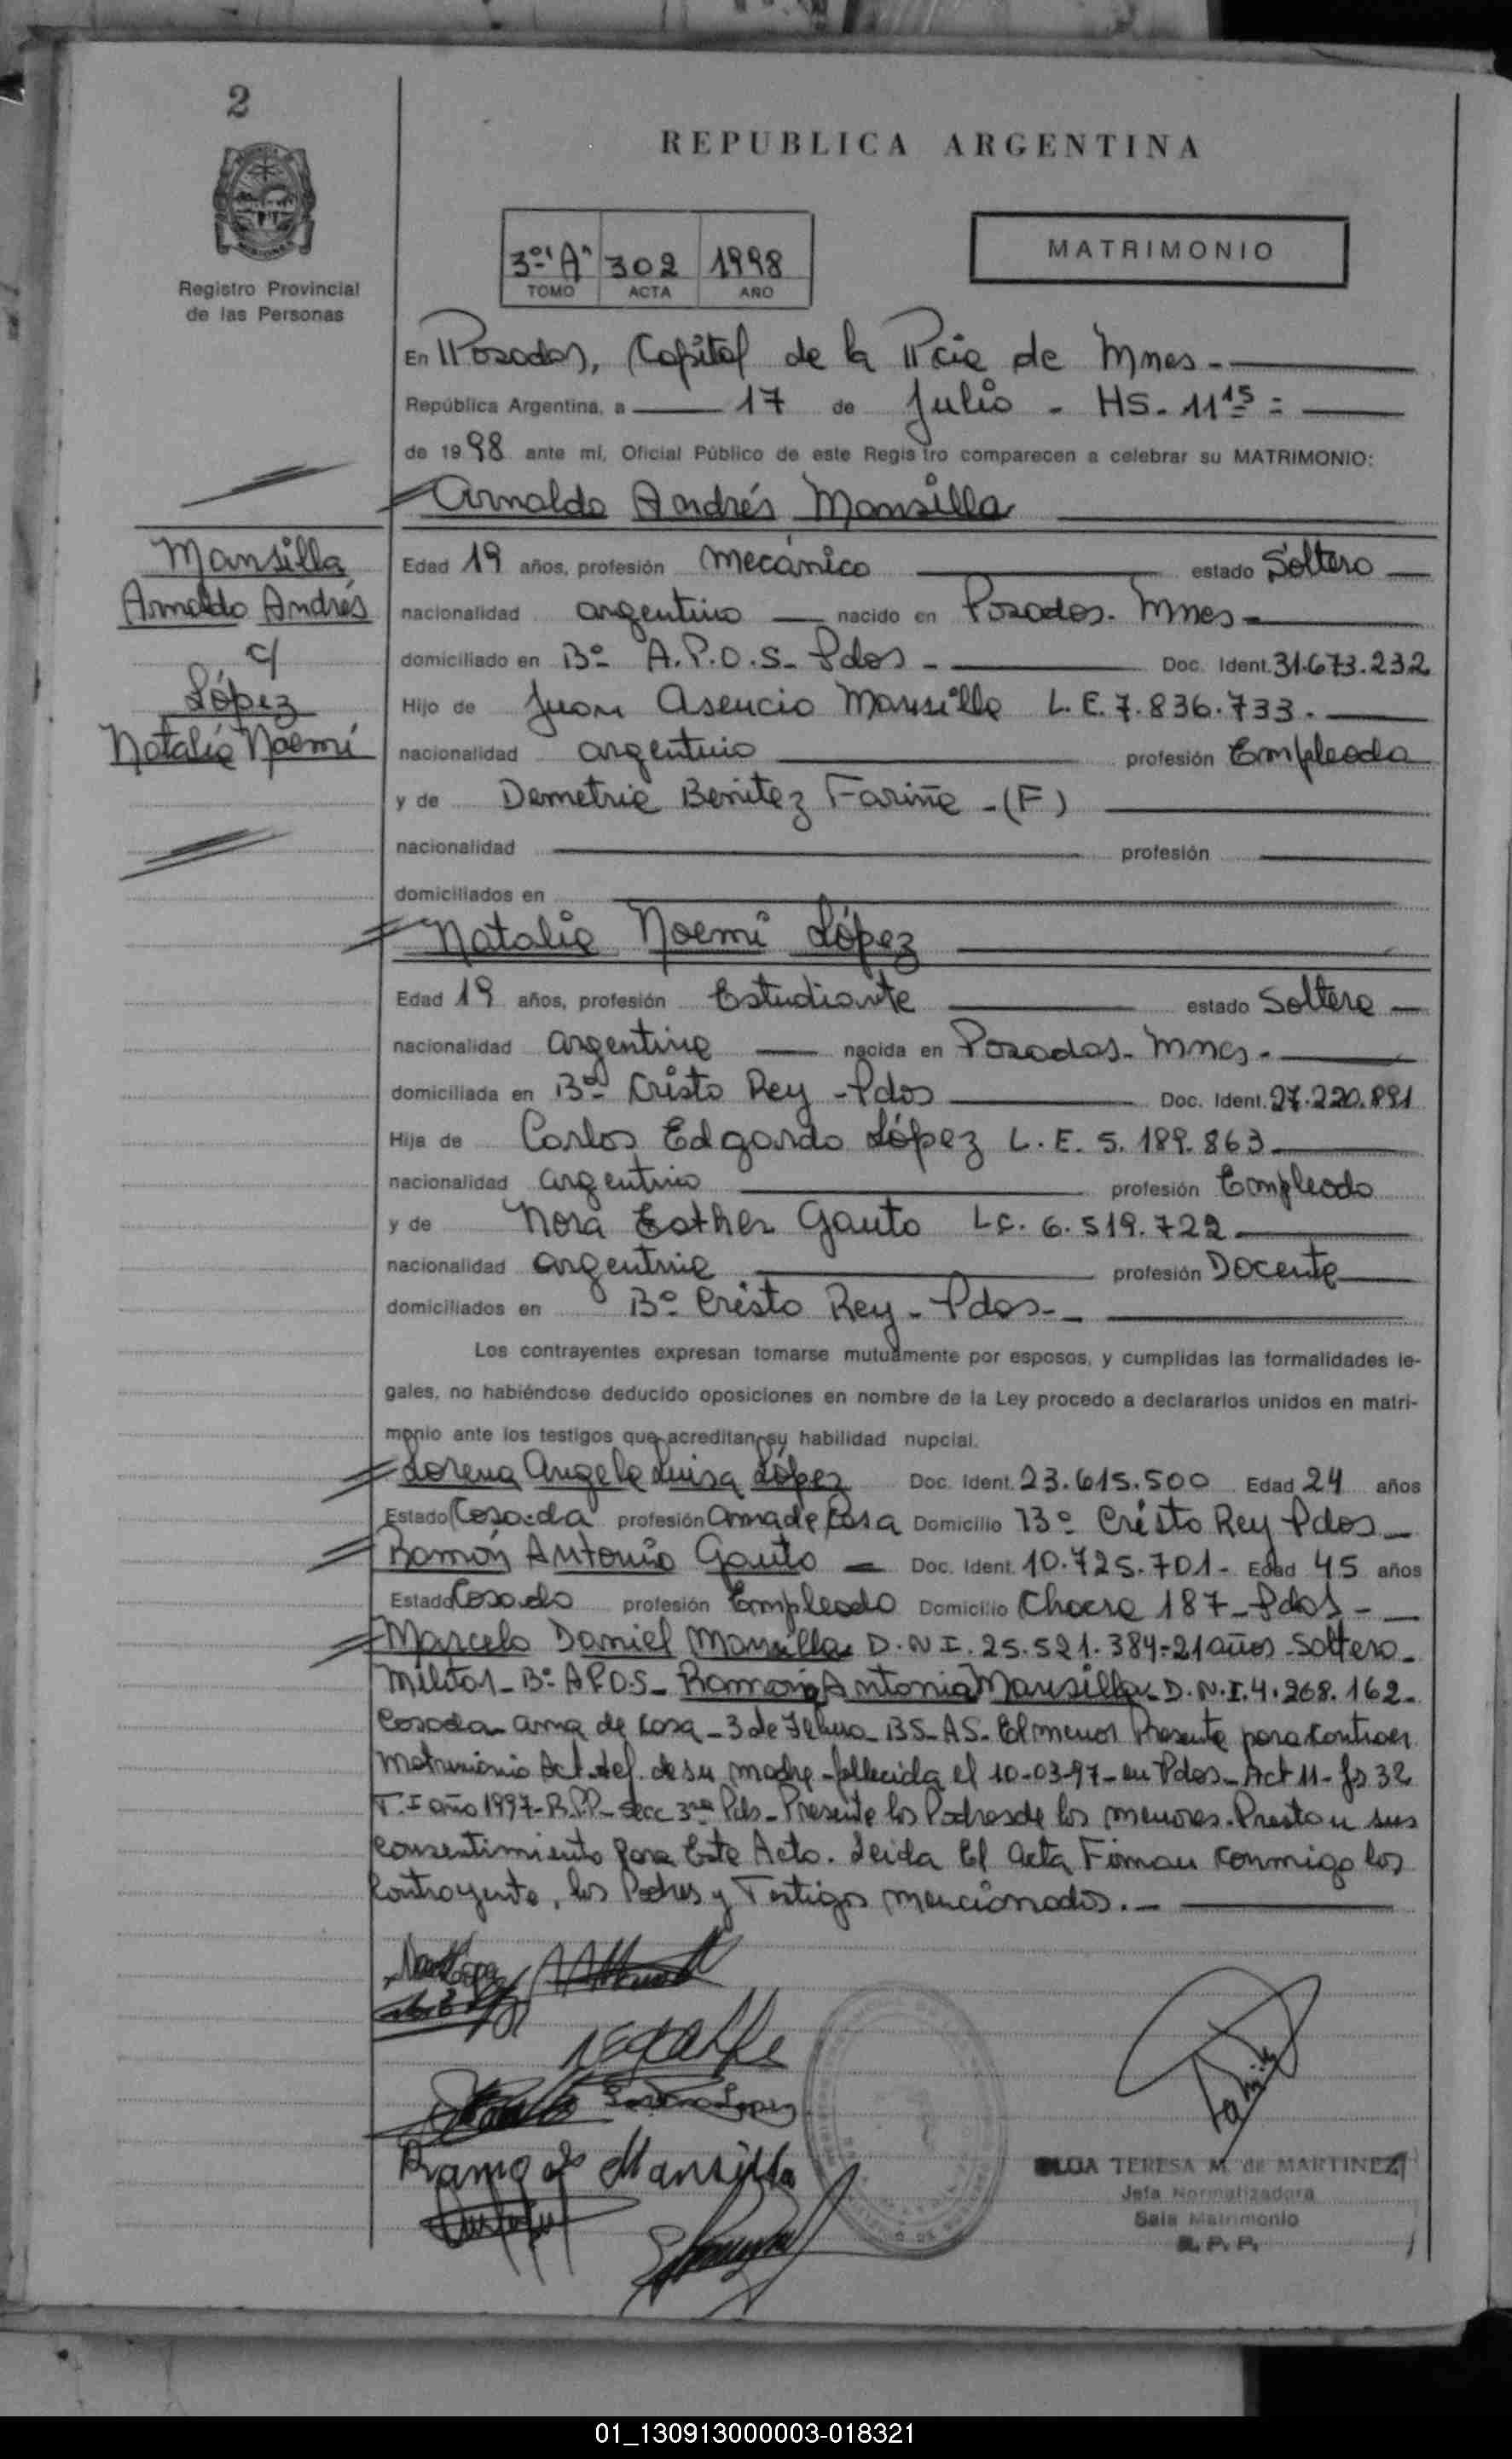 2
REPUBLICA ARGENTINA
Registro Provincial
de las Personas
3º "A" 302 1998
TOMO ACTA AÑO
MATRIMONIO
En Posadas, Capital de la Pcia de Mnes -
República Argentina, a 17 de Julio - HS. 11 15 =
de 1998 ante mí, Oficial Público de este Registro comparecen a celebrar su MATRIMONIO:
Arnaldo Andrés Mansilla
Mansilla
Arnaldo Andrés
c/
López
Natalia Noemí
Edad 19 años, profesión Mecánico estado Soltero
nacionalidad argentino nacido en Posadas. Mnes -
domiciliado en Bº A.P.O.S. Pdas - Doc. Ident. 31.673.232
Hijo de Juan Asencio Mansilla L.E. 7.836.733.
nacionalidad argentino profesión Empleado
y de Demetria Benitez Fariña - (F)
nacionalidad profesión
domiciliados en
Natalia Noemí López
Edad 19 años, profesión Estudiante estado Soltera
nacionalidad argentina nacida en Posadas. Mnes.
domiciliada en Bº Cristo Rey - Pdas Doc. Ident. 27.220.891
Hija de Carlos Edgardo López L.E. 5.189.863
nacionalidad argentino profesión Empleado
y de Nora Esther Gauto L.C. 6.519.722
nacionalidad argentina profesión Docente
domiciliados en Bº Cristo Rey - Pdas -
Los contrayentes expresan tomarse mutuamente por esposos, y cumplidas las formalidades le-
gales, no habiéndose deducido oposiciones en nombre de la Ley procedo a declararlos unidos en matri-
monio ante los testigos que acreditan su habilidad nupcial.
Lorena Angela Luisa López Doc. Ident. 23.615.500 Edad 24 años
Estado Casada profesión Ama de Casa Domicilio Bº Cristo Rey Pdas
Ramón Antonio Gauto Doc. Ident. 10.725.701 - Edad 45 años
Estado Casado profesión Empleado Domicilio Chacra 187 - Pdas -
Marcelo Daniel Mansilla D.N.I. 25.521.384 - 21 años - Soltero -
Militar - Bº A.P.O.S - Ramona Antonia Mansilla - D.N.I. 4.268.162 -
Casada - ama de casa - 3 de Febrero - BS-AS - El menor Presenta para Contraer
Matrimonio Act. def. de su madre - fallecida el 10-03-97 - en Pdas - Act 11 - fs 32
T. I año 1997 - R.P.P. - Secc 3ra Pds - Presente los Padres de los menores. Prestan sus
Consentimiento para Este Acto. Leida El Acta Firman conmigo los
Contrayente, los Padres y Testigos mencionados. -
Lorena Lopez
Ramona Mansilla
OLGA TERESA M. de MARTINEZ
Jefa Normalizadora
Sala Matrimonio
R. P. P.
01_130913000003-018321